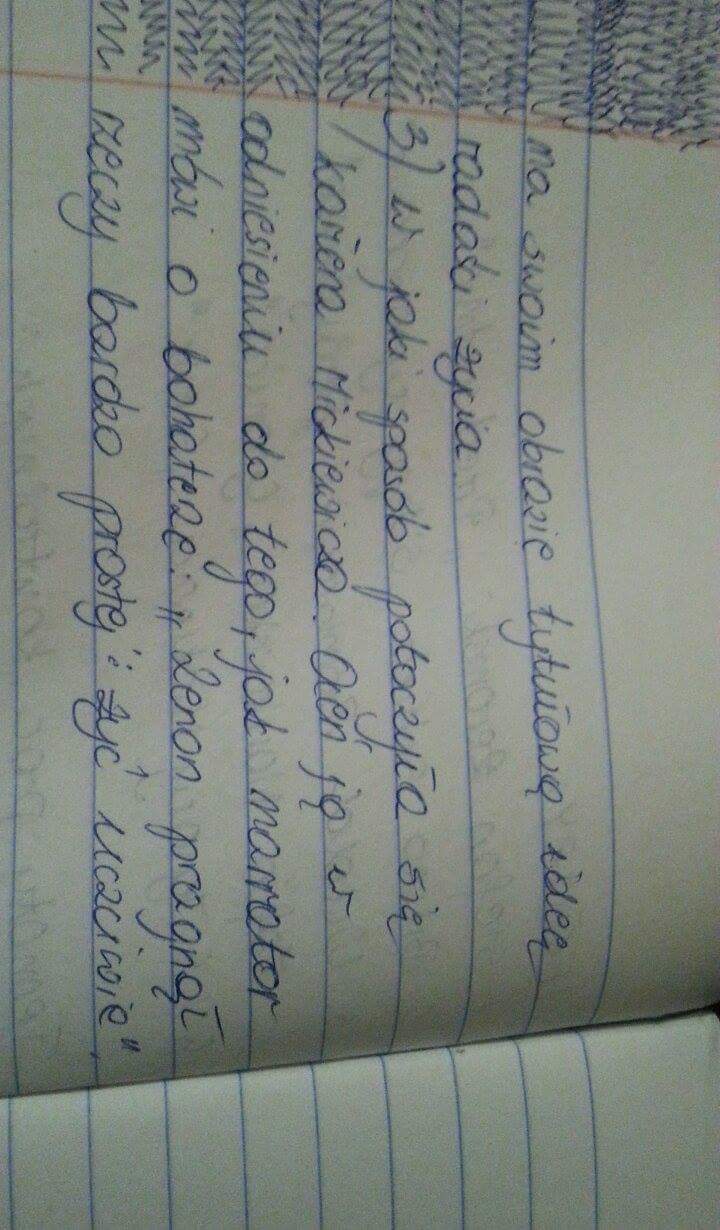 na swoim obrazie tytułową ideę
radości życia
3) w jaki sposób potoczyła się
kariera Mickiewicza. Oceń ją w
odniesieniu do tego, jak narrator
mówi o bohaterze: „Zenon pragnął
rzeczy bardzo prostej: żyć uczciwie"